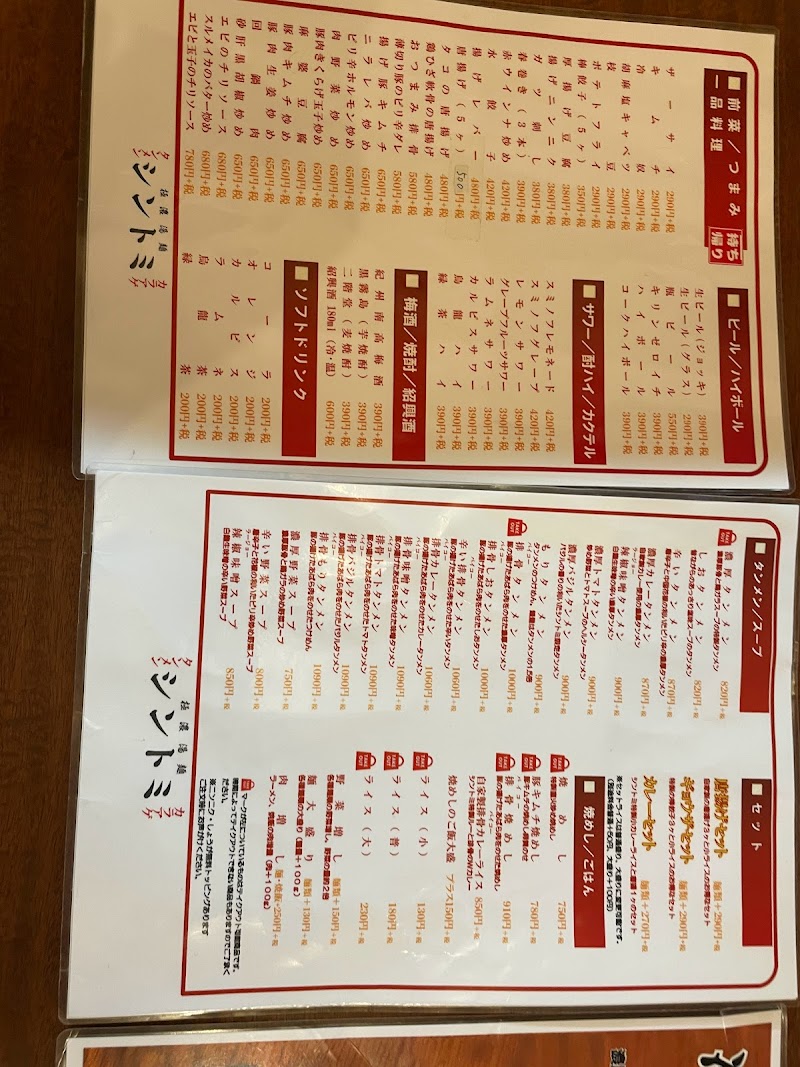 ■前菜／つまみ
一品料理
持ち帰り
ザーサイ 290円+税
キムチ 290円+税
冷奴 290円+税
胡麻塩キャベツ 290円+税
枝豆 290円+税
ポテトフライ 290円+税
棒餃子（5ヶ） 350円+税
厚揚げ豆腐 380円+税
揚げニンニク 380円+税
ガツ刺し 380円+税
春巻き（3本） 390円+税
赤ウインナ炒め 420円+税
水餃子 420円+税
揚げレバー 480円+税
唐揚げ（5ヶ） 500円+税
タコの唐揚げ 480円+税
鶏ひざ軟骨の唐揚げ 480円+税
おつまみ排骨 580円+税
薄切り豚のピリ辛ダレ 580円+税
揚げ豚キムチ 650円+税
ニラレバ炒め 650円+税
ピリ辛ホルモン炒め 650円+税
肉野菜炒め 650円+税
豚肉きくらげ玉子炒め 650円+税
麻婆豆腐 650円+税
豚肉キムチ炒め 650円+税
豚肉生姜炒め 650円+税
回鍋肉 650円+税
砂肝黒胡椒炒め 650円+税
エビのチリソース 680円+税
スルメイカのバター炒め 680円+税
エビと玉子のチリソース 780円+税
■ビール／ハイボール
生ビール（ジョッキ） 390円+税
生ビール（グラス） 290円+税
瓶ビール 550円+税
キリンゼロイチ 390円+税
ハイボール 390円+税
コークハイボール 390円+税
■サワー／酎ハイ／カクテル
スミノフレモネード 420円+税
スミノフグレープ 420円+税
レモンサワー 390円+税
グレープフルーツサワー 390円+税
ラムネサワー 390円+税
カルピスサワー 390円+税
烏龍ハイ 390円+税
緑茶ハイ 390円+税
■梅酒／焼酎／紹興酒
紀州南高梅酒 390円+税
黒霧島（芋焼酎） 390円+税
二階堂（麦焼酎） 390円+税
紹興酒 180ml（冷・温） 600円+税
■ソフトドリンク
コーラ 200円+税
オレンジ 200円+税
カルピス 200円+税
ラムネ 200円+税
烏龍茶 200円+税
緑茶 200円+税
極濃湯麺
タンメン シントミ カブアゲ
■タンメン／スープ
TAKE OUT
濃厚タンメン 820円+税
しおタンメン 820円+税
辛いタンメン 870円+税
濃厚カレータンメン 870円+税
ラージョー
辣椒味噌タンメン 900円+税
濃厚トマトタンメン 900円+税
濃厚バジルタンメン 900円+税
もりタンメン 900円+税
TAKE OUT
パイコー
排骨タンメン 1000円+税
排骨しおタンメン 1000円+税
辛い排骨タンメン 1050円+税
排骨カレータンメン 1000円+税
排骨味噌タンメン 1090円+税
排骨トマトタンメン 1090円+税
排骨バジルタンメン 1090円+税
排骨もりタンメン 1090円+税
濃厚野菜スープ 750円+税
辛い野菜スープ 800円+税
ラージョー
辣椒味噌スープ 850円+税
■セット
唐揚げセット 麺類＋290円+税
ギョウザセット 麺類＋290円+税
カレーセット 麺類＋270円+税
※セットライスは普通盛り、大盛りに変更可能です。
■焼めし／ごはん
TAKE OUT
焼めし 750円+税
TAKE OUT
豚キムチ焼めし 780円+税
TAKE OUT
パイコー
排骨焼めし 910円+税
自家製排骨カレーライス 850円+税
焼めしのご飯大盛 プラス150円+税
TAKE OUT
ライス（小） 130円+税
TAKE OUT
ライス（普） 180円+税
TAKE OUT
ライス（大） 230円+税
野菜増し 麺類＋150円+税
麺大盛り 麺類＋130円+税
肉増し 麺・焼飯＋250円+税
ラーメン、焼飯の肉増量（肉＋100g）
マークが左についているものはテイクアウト可能商品です。
時間によってテイクアウトできない商品もありますのでご了承ください。
※ニンニク・しょうが無料トッピングあります
ご注文時にお声がけください。
極濃湯麺
タンメン シントミ カブアゲ